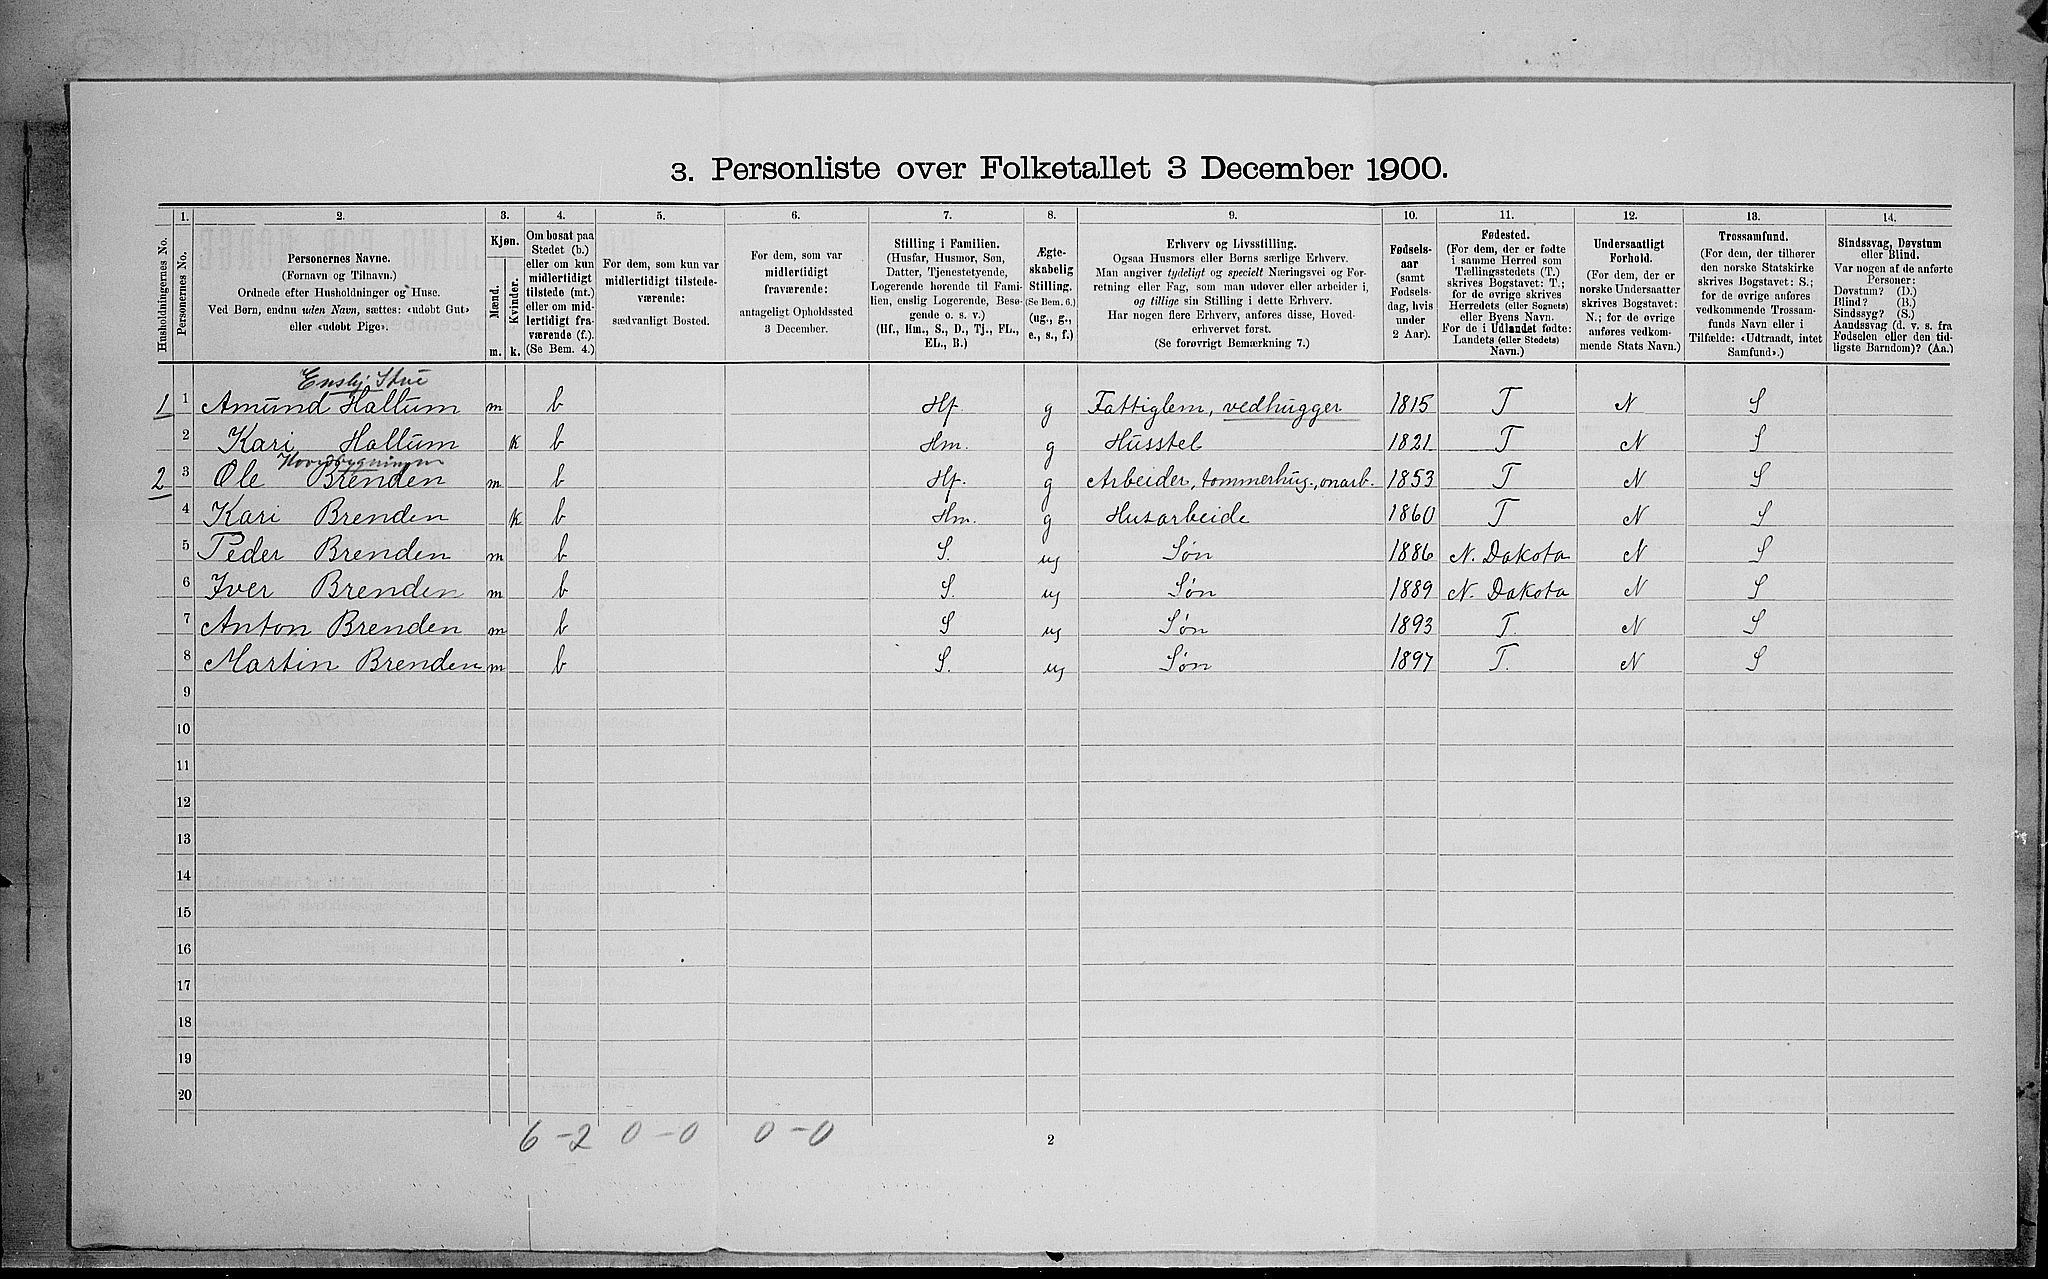 3. Personliste over Folketallet 3 December 1900.
1. 2. 3. 4. 5. 6. 7. 8. 9. 10. 11. 12. 13. 14.
Husholdningernes No.
Personernes No.
Personernes Navne.
(Fornavn og Tilnavn.)
Ordnede efter Husholdninger og Huse.
Ved Børn, endnu uden Navn, sættes: «udøbt Gut»
eller «udøbt Pige».
Kjøn.
Mænd.
Kvinder.
m. k.
Om bosat paa
Stedet (b.)
eller om kun
midlertidigt
tilstede (mt.)
eller om mid-
lertidigt fra-
værende (f.).
(Se Bem. 4.)
For dem, som kun var
midlertidigt tilstede-
værende:
sædvanligt Bosted.
For dem, som var
midlertidigt
fraværende:
antageligt Opholdssted
3 December.
Stilling i Familien.
(Husfar, Husmor, Søn,
Datter, Tjenestetyende,
Logerende hørende til Fami-
lien, enslig Logerende, Besø-
gende o. s. v.)
(Hf., Hm., S., D., Tj., FL.,
EL., B.)
Ægte-
skabelig
Stilling.
(Se Bem. 6.)
(ug., g.,
e., s., f.)
Erhverv og Livsstilling.
Ogsaa Husmors eller Børns særlige Erhverv.
Man angiver tydeligt og specielt Næringsvei og For-
retning eller Fag, som man udover eller arbeider i,
og tillige sin Stilling i dette Erhverv.
Har nogen flere Erhverv, anføres disse, Hoved-
erhvervet først.
(Se forøvrigt Bemærkning 7.)
Fødsels-
aar
(samt
Fødsels-
dag, hvis
under
2 Aar).
Fødested.
(For dem, der er fødte
i samme Herred som
Tællingsstedets (T.)
skrives Bogstavet: T.;
for de øvrige skrives
Herredets (eller Sognets)
eller Byens Navn.
For de i Udlandet fødte:
Landets (eller Stedets)
Navn.)
Undersaatligt
Forhold.
(For dem, der er
norske Undersaatter
skrives Bogstavet:
N.; for de øvrige
anføres vedkom-
mende Stats Navn.)
Trossamfund.
(For dem, der tilhører
den norske Statskirke
skrives Bogstavet: S.;
for de øvrige anføres
vedkommende Trossam-
funds Navn eller i
Tilfælde: «Udtraadt, intet
Samfund».)
Sindssvag, Døvstum
eller Blind.
Var nogen af de anførte
Personer:
Døvstum? (D.)
Blind? (B.)
Sindssyg? (S.)
Aandssvag (d. v. s. fra
Fødselen eller den tid-
ligste Barndom)? (Aa.)
Ensby Stue
1 1 Amund Hallum m b Hf. g Fattiglem, vedhugger 1815 T N S
2 Kari Hallum k b Hm. g Husstel 1821 T N S
Hovedbygningen
2 3 Ole Brenden m b Hf. g Arbeider, tømmerhug., onarb. 1853 T N S
4 Kari Brenden k b Hm. g Husarbeide 1860 T N S
5 Peder Brenden m b S. ug Søn 1886 N. Dakota N S
6 Iver Brenden m b S. ug Søn 1889 N. Dakota N S
7 Anton Brenden m b S ug Søn 1893 T. N S
8 Martin Brenden m b S. ug Søn 1897 T. N S
9
10
11
12
13
14
15
16
17
18
19
20
6-2 0-0 0-0
2